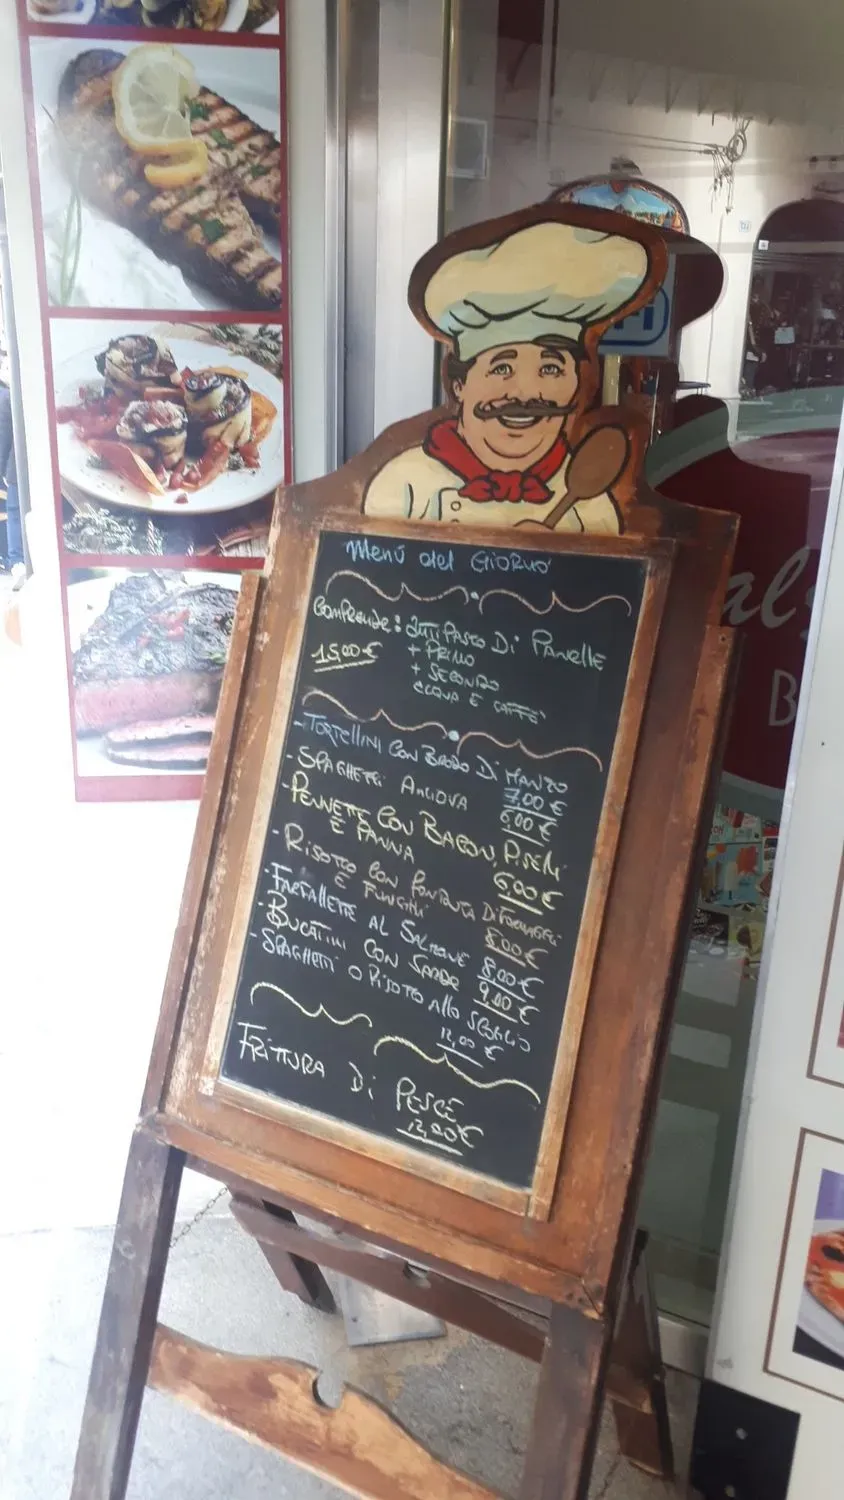 Menú del GIORNO
Comprende: ANTIPASTO Di PANELLE
15,00€
+ PRIMO
+ SECONDO
ACQUA E CAFFE'
- TORTELLINI CON BRODO Di MANZO
7,00 €
- SPAGHETTI ANCIOVA
6,00 €
- PENNETTE CON BACON, PISELLI
E PANNA
6,00€
- RISOTTO CON FONDUTA Di FORMAGGI
E FUNGHI
8,00€
- FARFALLETTE AL SALMONE
8,00€
- BUCATINI CON SARDE
9,00€
- SPAGHETTI O RISOTTO ALLO SCOGLIO
12,00 €
FRITTURA Di PESCE
12,00€